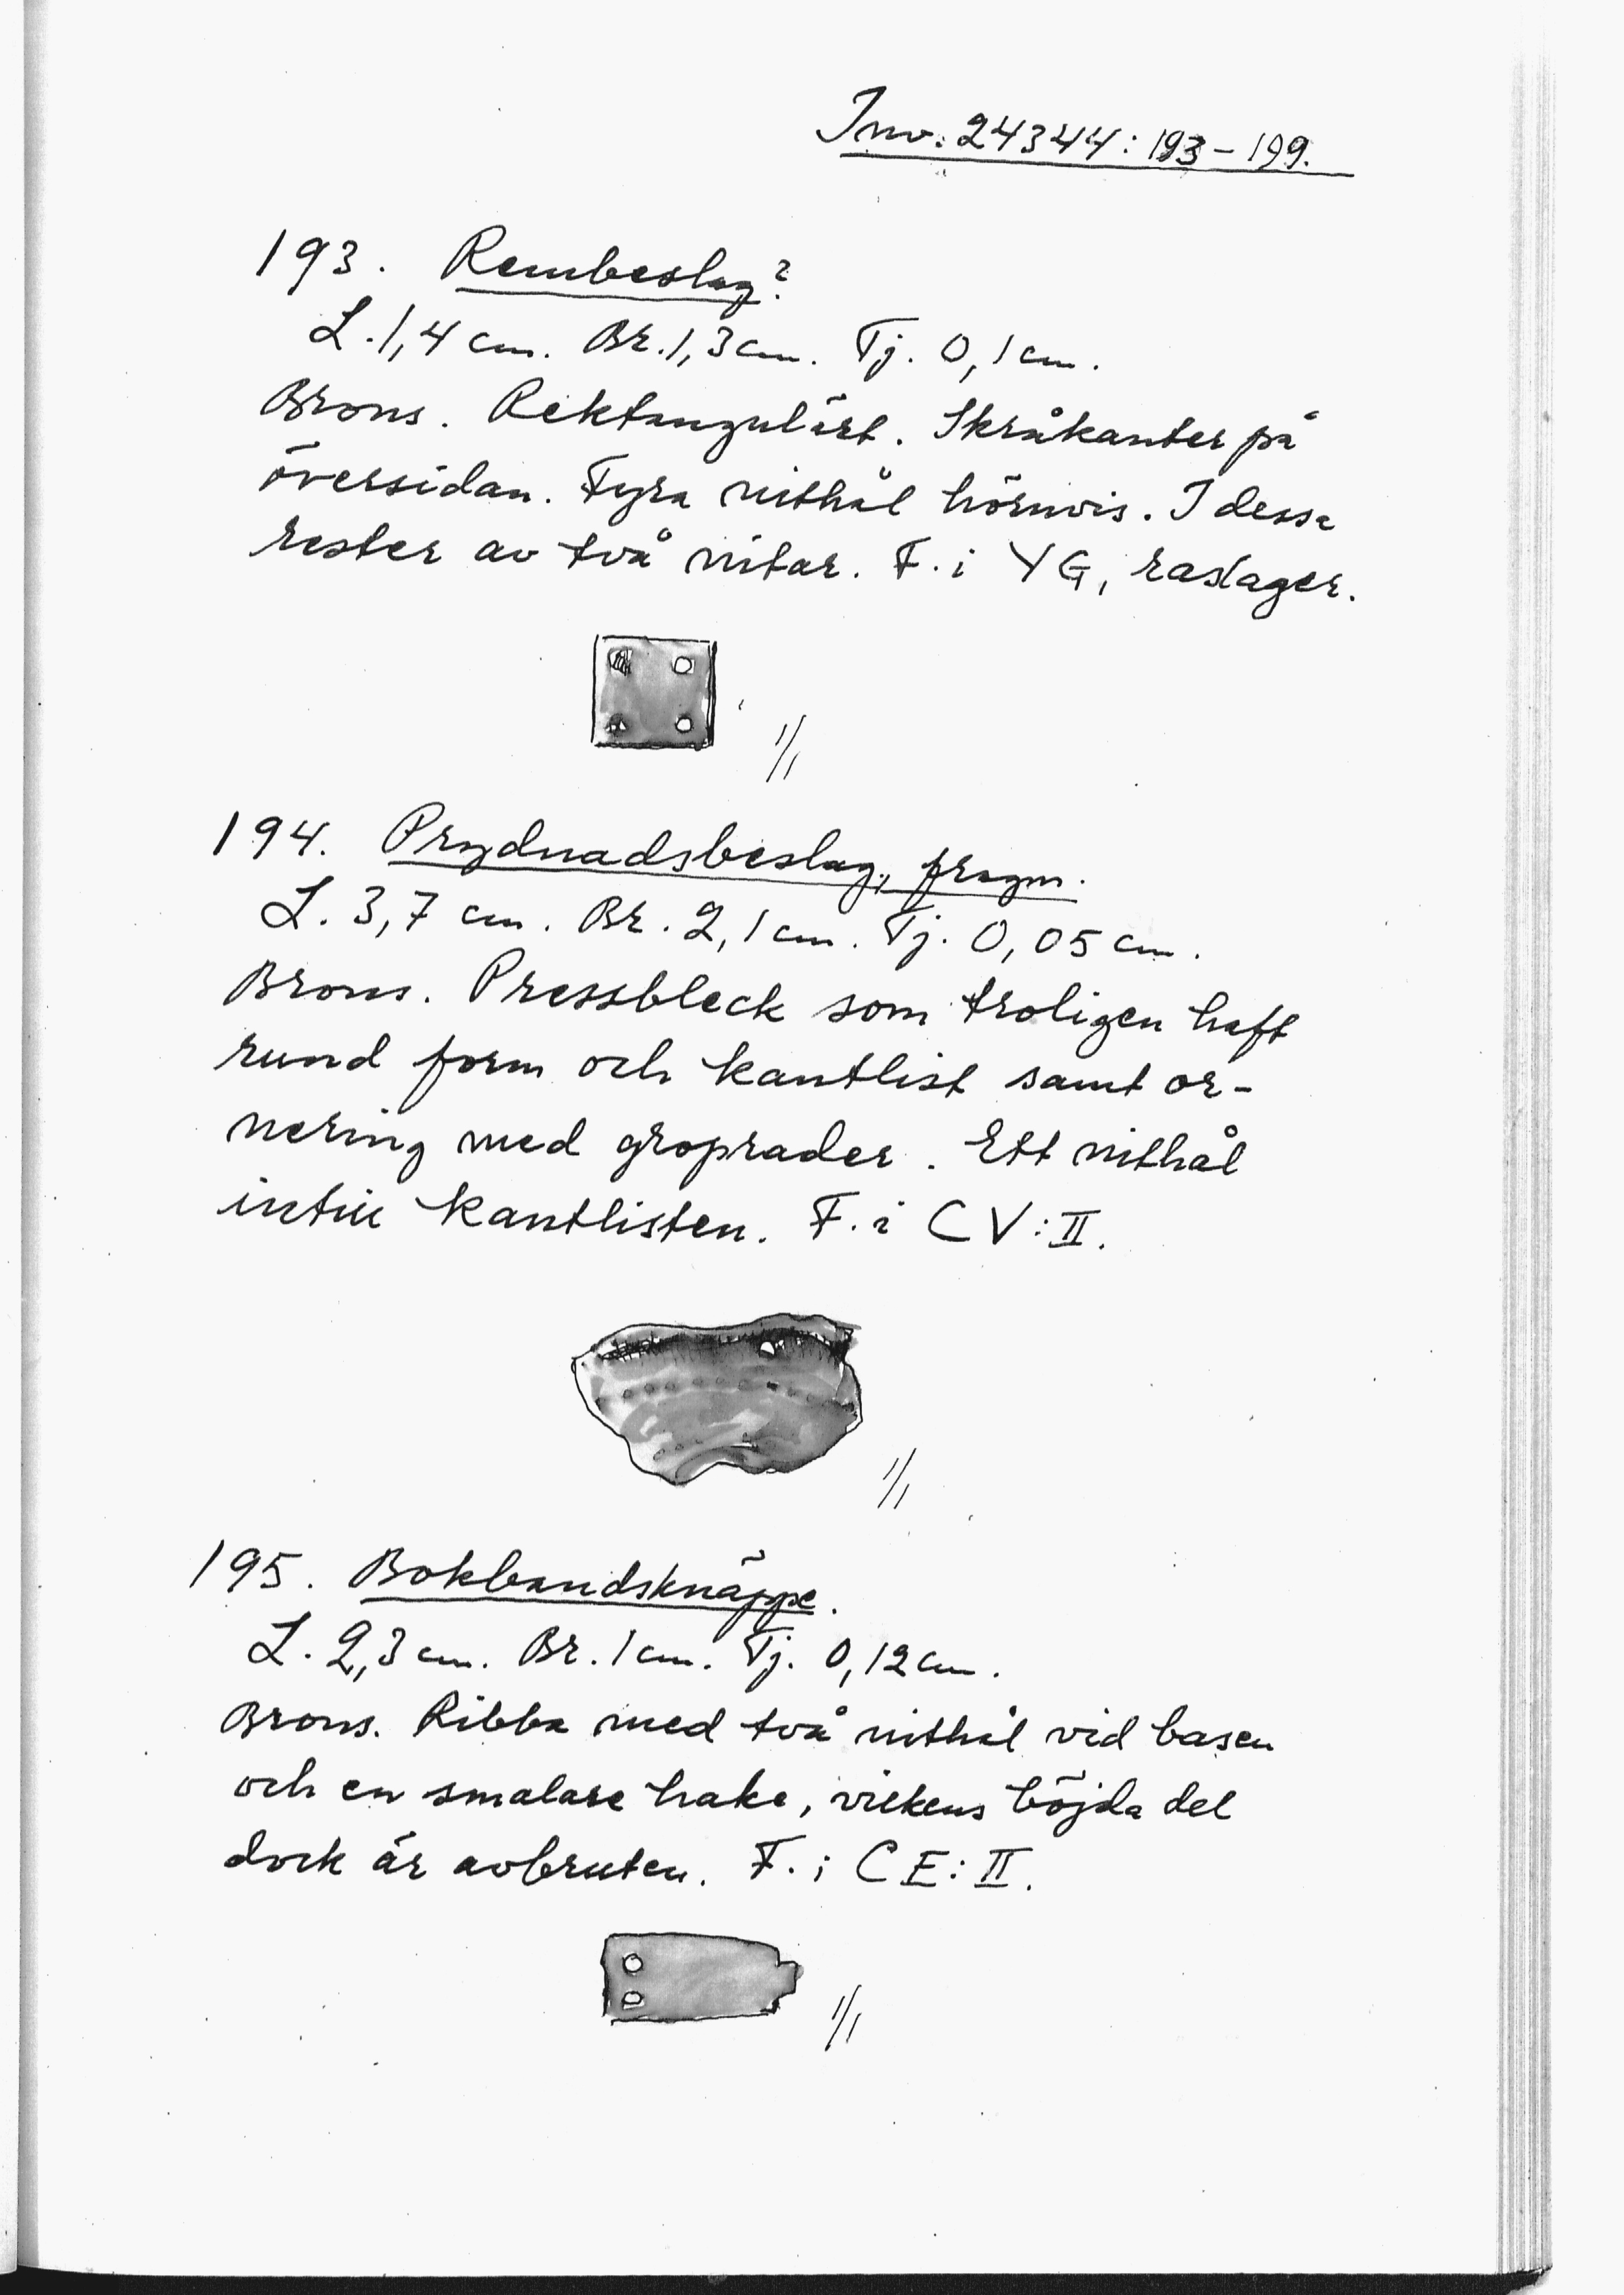 Inv. 24344:193-199.
193. Rembeslag?
L. 1,4 cm. Br. 1,3 cm. Tj. 0,1 cm.
Brons. Rektangulärt. Skråkanter på
översidan. Fyra nithål hörnvis. I dessa
rester av två nitar. F. i YG, raslager.
1/1
194. Prydnadsbeslag, fragm.
L. 3,7 cm. Br. 2,1 cm. Tj. 0,05 cm.
Brons. Pressbleck som troligen haft
rund form och kantlist samt or-
nering med groprader. Ett nithål
intill kantlisten. F. i CV:II.
1/1
195. Bokbandsknäppe.
L. 2,3 cm. Br. 1 cm. Tj. 0,12 cm.
Brons. Ribba med två nithål vid basen
och en smalare hake, vilkens böjda del
dock är avbruten. F. i CE:II.
1/1